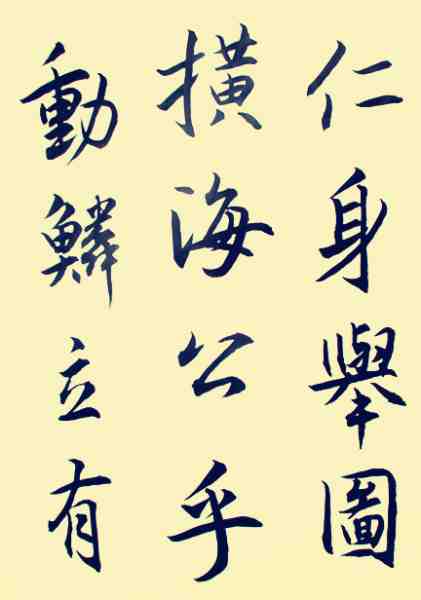 仁身舉圖
橫海公乎
動鱗立有